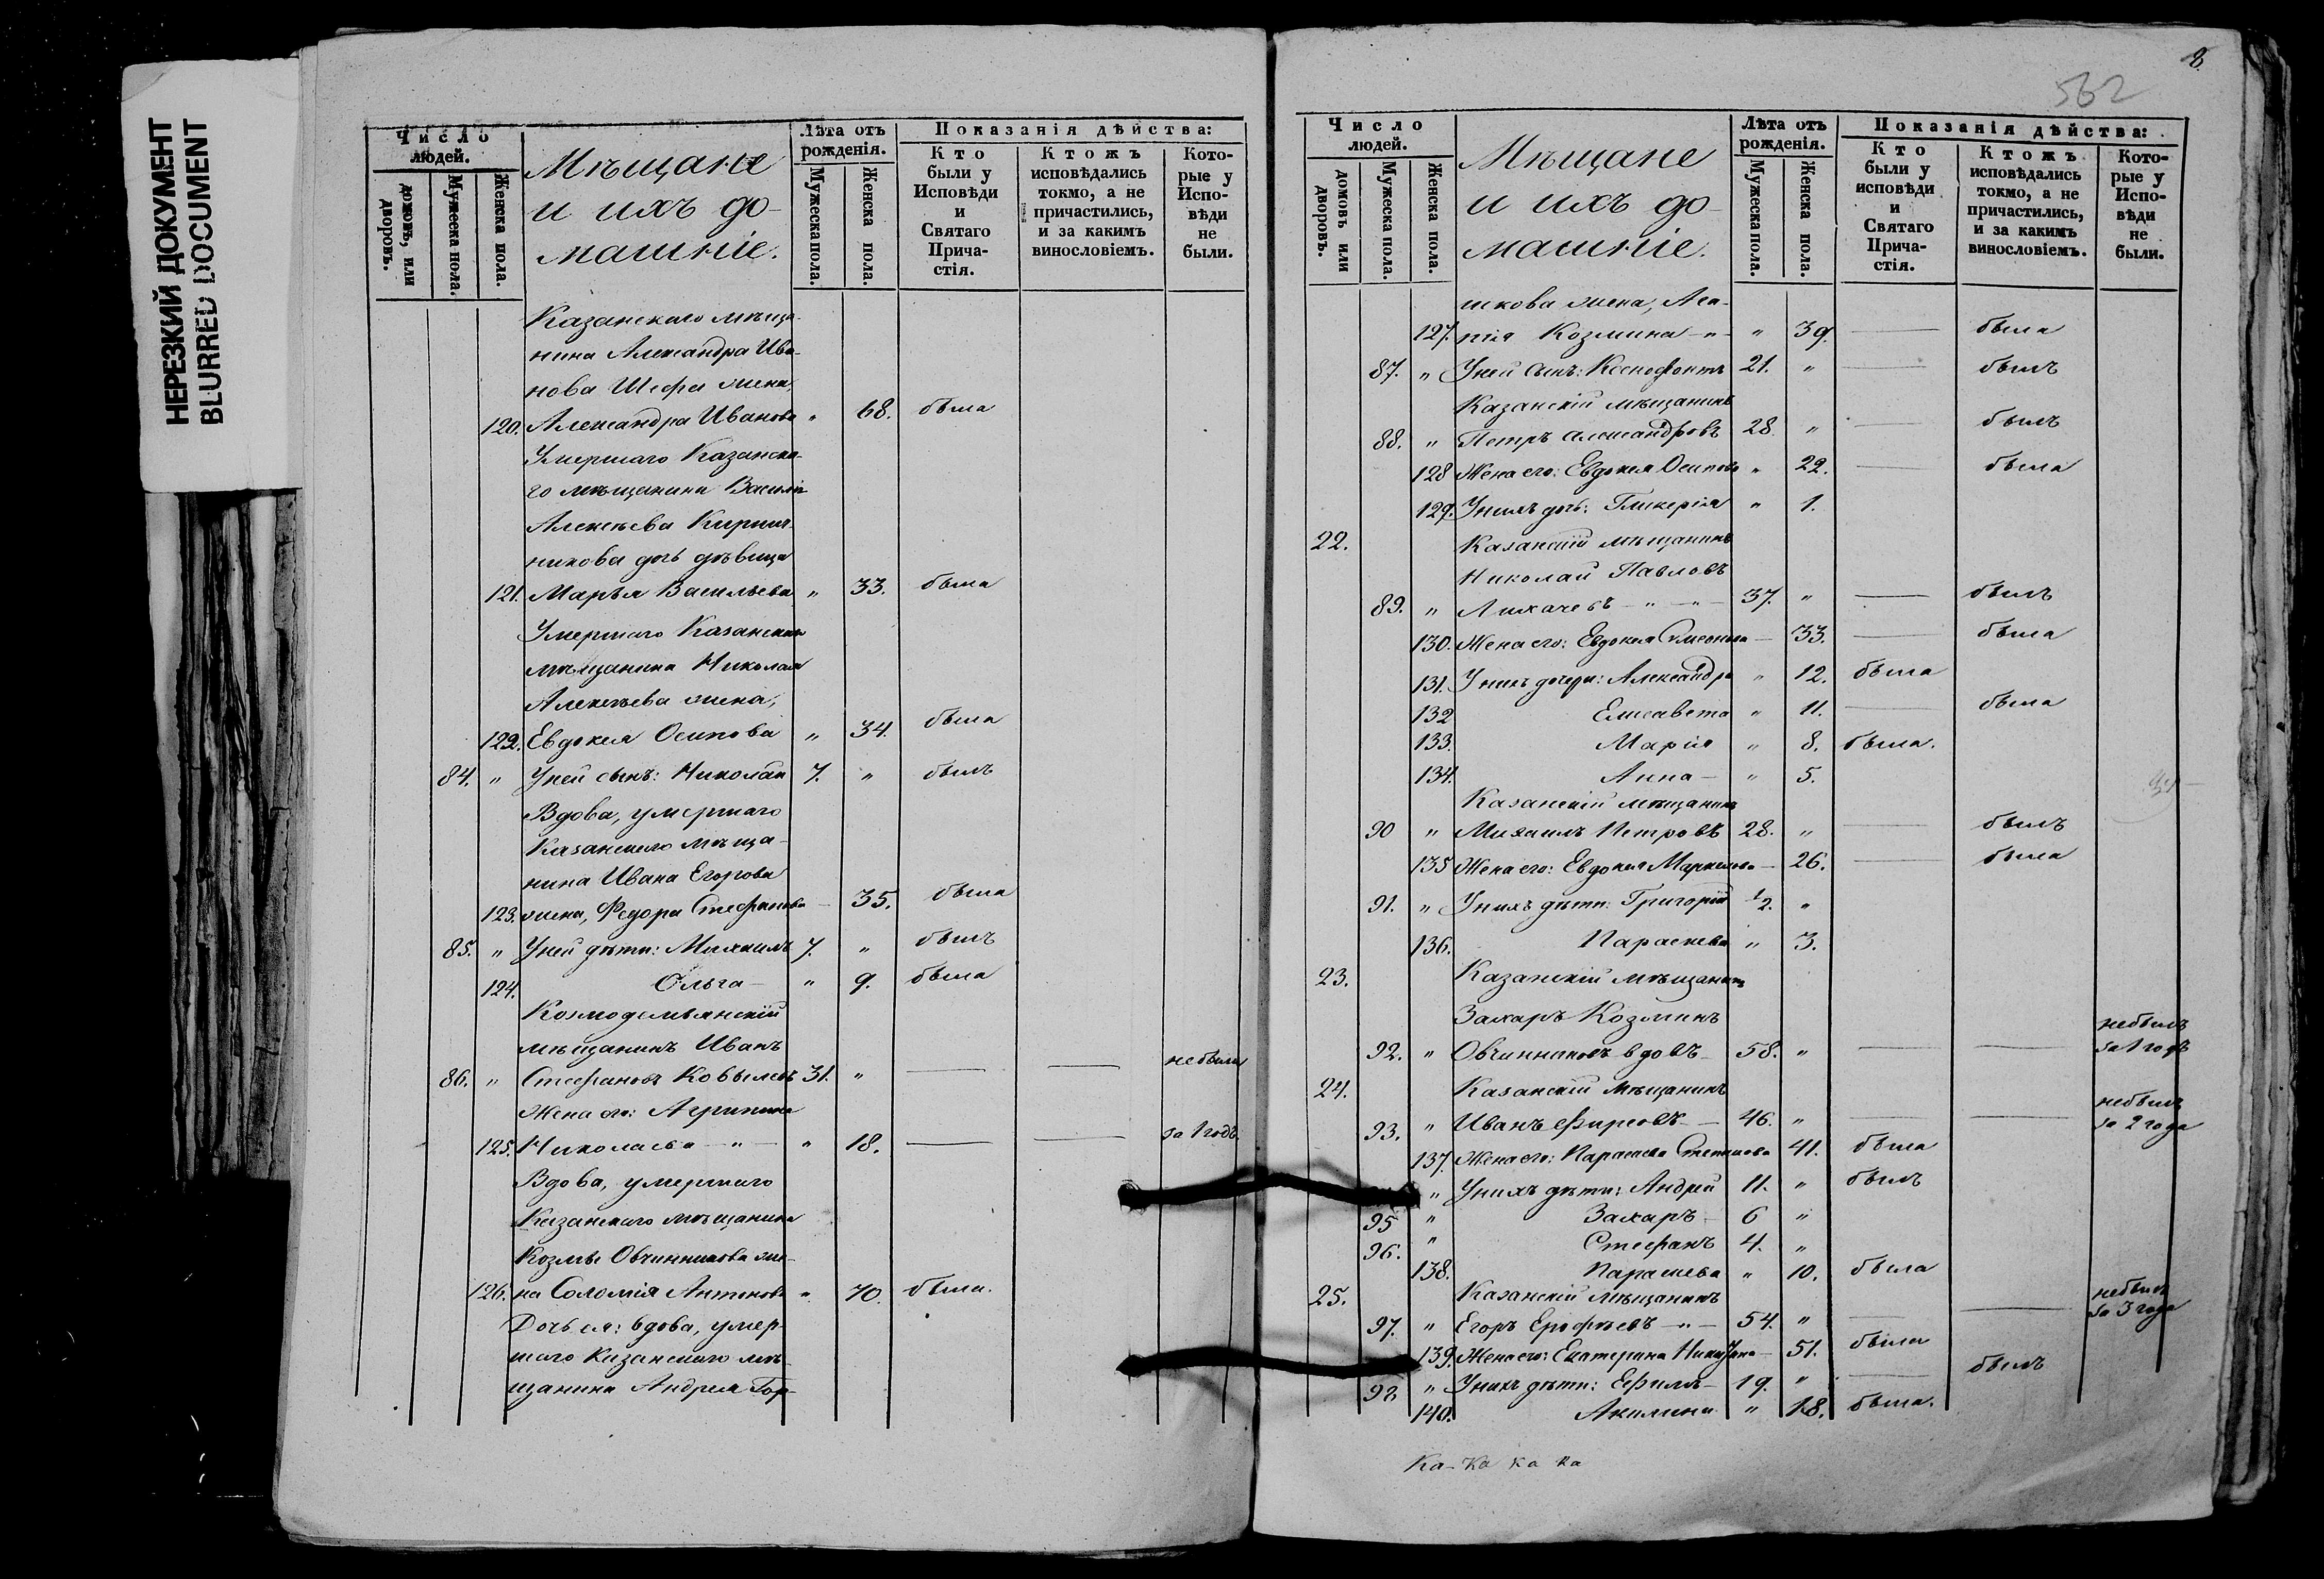 НЕРЕЗКИЙ ДОКУМЕНТ
BLURRED DOCUMENT
Число людей.
домовъ, или дворовъ.
Мужеска пола.
Женска пола.
Мѣщане
и ихъ до-
машніе.
Лѣта отъ рожденія.
Мужеска пола.
Женска пола.
Показанія дѣйства:
Кто были у Исповѣди и Святаго Прича-стія.
Ктожъ исповѣдались токмо, а не причастились, и за какимъ винословіемъ.
Кото-рые у Испо-вѣди не были.
Казанскаго мѣща-
нина Александра Ива-
нова Шефи жена,
120. Александра Иванова „ 68. была
Умершаго Казанска-
го мѣщанина Василія
Алексѣева Кирпич-
никова дочь дѣвица
121. Марья Васильева „ 33. была
Умершаго Казанскаго
мѣщанина Николая
Алексѣева жена,
122. Евдокія Осипова „ 34. была
84. „ У ней сынъ: Николай 7. „ былъ
Вдова, умершаго
Казанскаго мѣща-
нина Ивана Егорова
123. жена, Федора Стефанова — 35. была
85. „ У ней дѣти: Михаилъ 7. „ былъ
124. Ольга — „ 9. была
Козмодемьянскій
мѣщанинъ Иванъ
86. „ Стефановъ Кобылевъ 31. „ — — не были
Жена его: Агрипина
125. Николаева — „ — „ 18. — — за 1 годъ.
Вдова, умершаго
Казанскаго мѣщанина
Козмы Овчинникова же-
126. на Соломія Антонова „ 70. была.
Дочь ея: вдова, умер-
шаго Казанскаго мѣ-
щанина Андрея Гор-
8.
562
Число людей.
домовъ или дворовъ.
Мужеска пола.
Женска пола.
Мѣщане
и ихъ до-
машніе.
Лѣта отъ рожденія.
Мужеска пола.
Женска пола.
Показанія дѣйства:
Кто были у исповѣди и Святаго Прича-стія.
Ктожъ исповѣдались токмо, а не причастились, и за какимъ винословіемъ.
Кото-рые у Испо-вѣди не были.
шкова жена, Ага-
127. пія Козмина — „ — „ 39. — была
87. „ У ней сынъ: Ксенофонтъ 21. „ — былъ
Казанскій мѣщанинъ
88. „ Петръ Александровъ 28. „ — былъ
128 Жена его: Евдокія Осипова „ 22. — была
129. У нихъ дочь: Гликерія „ 1.
22. Казанскій мѣщанинъ
Николай Павловъ
89. „ Лихачевъ — „ — „ — 37. „ — былъ
130. Жена его: Евдокія Симеонова — 33. — была
131. У нихъ дочери: Александра „ 12. была
132 Елисавета „ 11. — была
133. Марія „ 8. была.
134. Анна — „ 5.
Казанскій мѣщанинъ
90 „ Михаилъ Петровъ 28. „ — былъ
135 Жена его: Евдокія — 26. — была
91. „ У нихъ дѣти: Григорій 1/2. „
136. Параскева „ 3.
23. Казанскій мѣщанинъ
Захаръ Козминъ
92. „ Овчинниковъ вдовъ — 58. „ — — небылъ за 1 годъ
24. Казанскій мѣщанинъ
93. „ Иванъ Фирсовъ — 46. „ — — небылъ за 2 года
137. Жена его: Параскева Степанова 41. была
„ У нихъ дѣти: Андрей 11. „ былъ
95 „ Захаръ — 6 „
96. „ Стефанъ 4. „
138. Параскева „ 10. была
25. Казанскій мѣщанинъ
97. „ Егоръ Ерофѣевъ — „ — 54. „ — — небылъ за 3 года
139. Жена его: Екатерина — 51. была
98 „ У нихъ дѣти: Ефимъ — 19. „ — былъ
140. Акилина „ 18. была.
Ка - ка ка ка